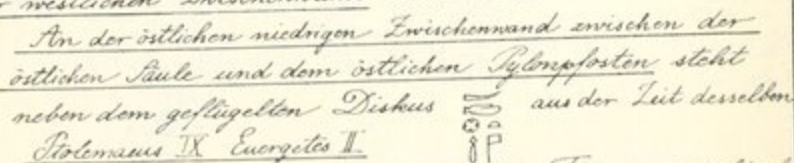 westlichen
An der östlichen niedrigen Zwischenwand zwischen der
östlichen Säule und dem östlichen Pylonpfosten steht
neben dem geflügelten Diskus aus der Zeit desselben
Ptolemaeus IX Euergetes II.